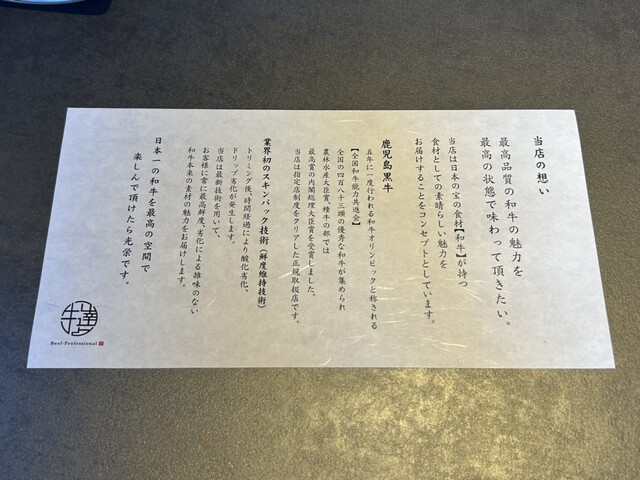 当店の想い
最高品質の和牛の魅力を
最高の状態で味わって頂きたい。
当店は日本の宝の食材【和牛】が持つ
食材としての素晴らしい魅力を
お届けすることをコンセプトとしています。
鹿児島黒牛
五年に一度行われる和牛オリンピックと称される
【全国和牛能力共進会】
全国の四百八十三頭の優秀な和牛が集められ
農林水産大臣賞、種牛の部では
最高賞の内閣総理大臣賞を受賞しました。
当店は指定店制度をクリアした正規取扱店です。
業界初のスキンパック技術（鮮度維持技術）
トリミング後、時間経過により酸化劣化、
ドリップ劣化が発生します。
当店は最新技術を用いて、
お客様に常に最高鮮度、劣化による雑味のない
和牛本来の素材の魅力をお届けします。
日本一の和牛を最高の空間で
楽しんで頂けたら光栄です。
牛達
Beef-Professional